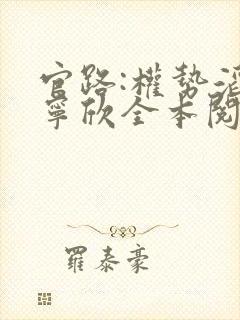 官路:權勢滔
寧欣全本閱
羅泰豪